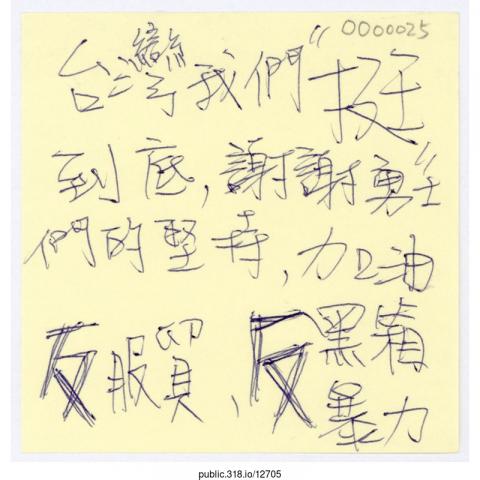 0000025
台灣我們“挺
到底，謝謝勇士”
們的堅持，加油
反服貿、反黑箱
暴力
public.318.io/12705